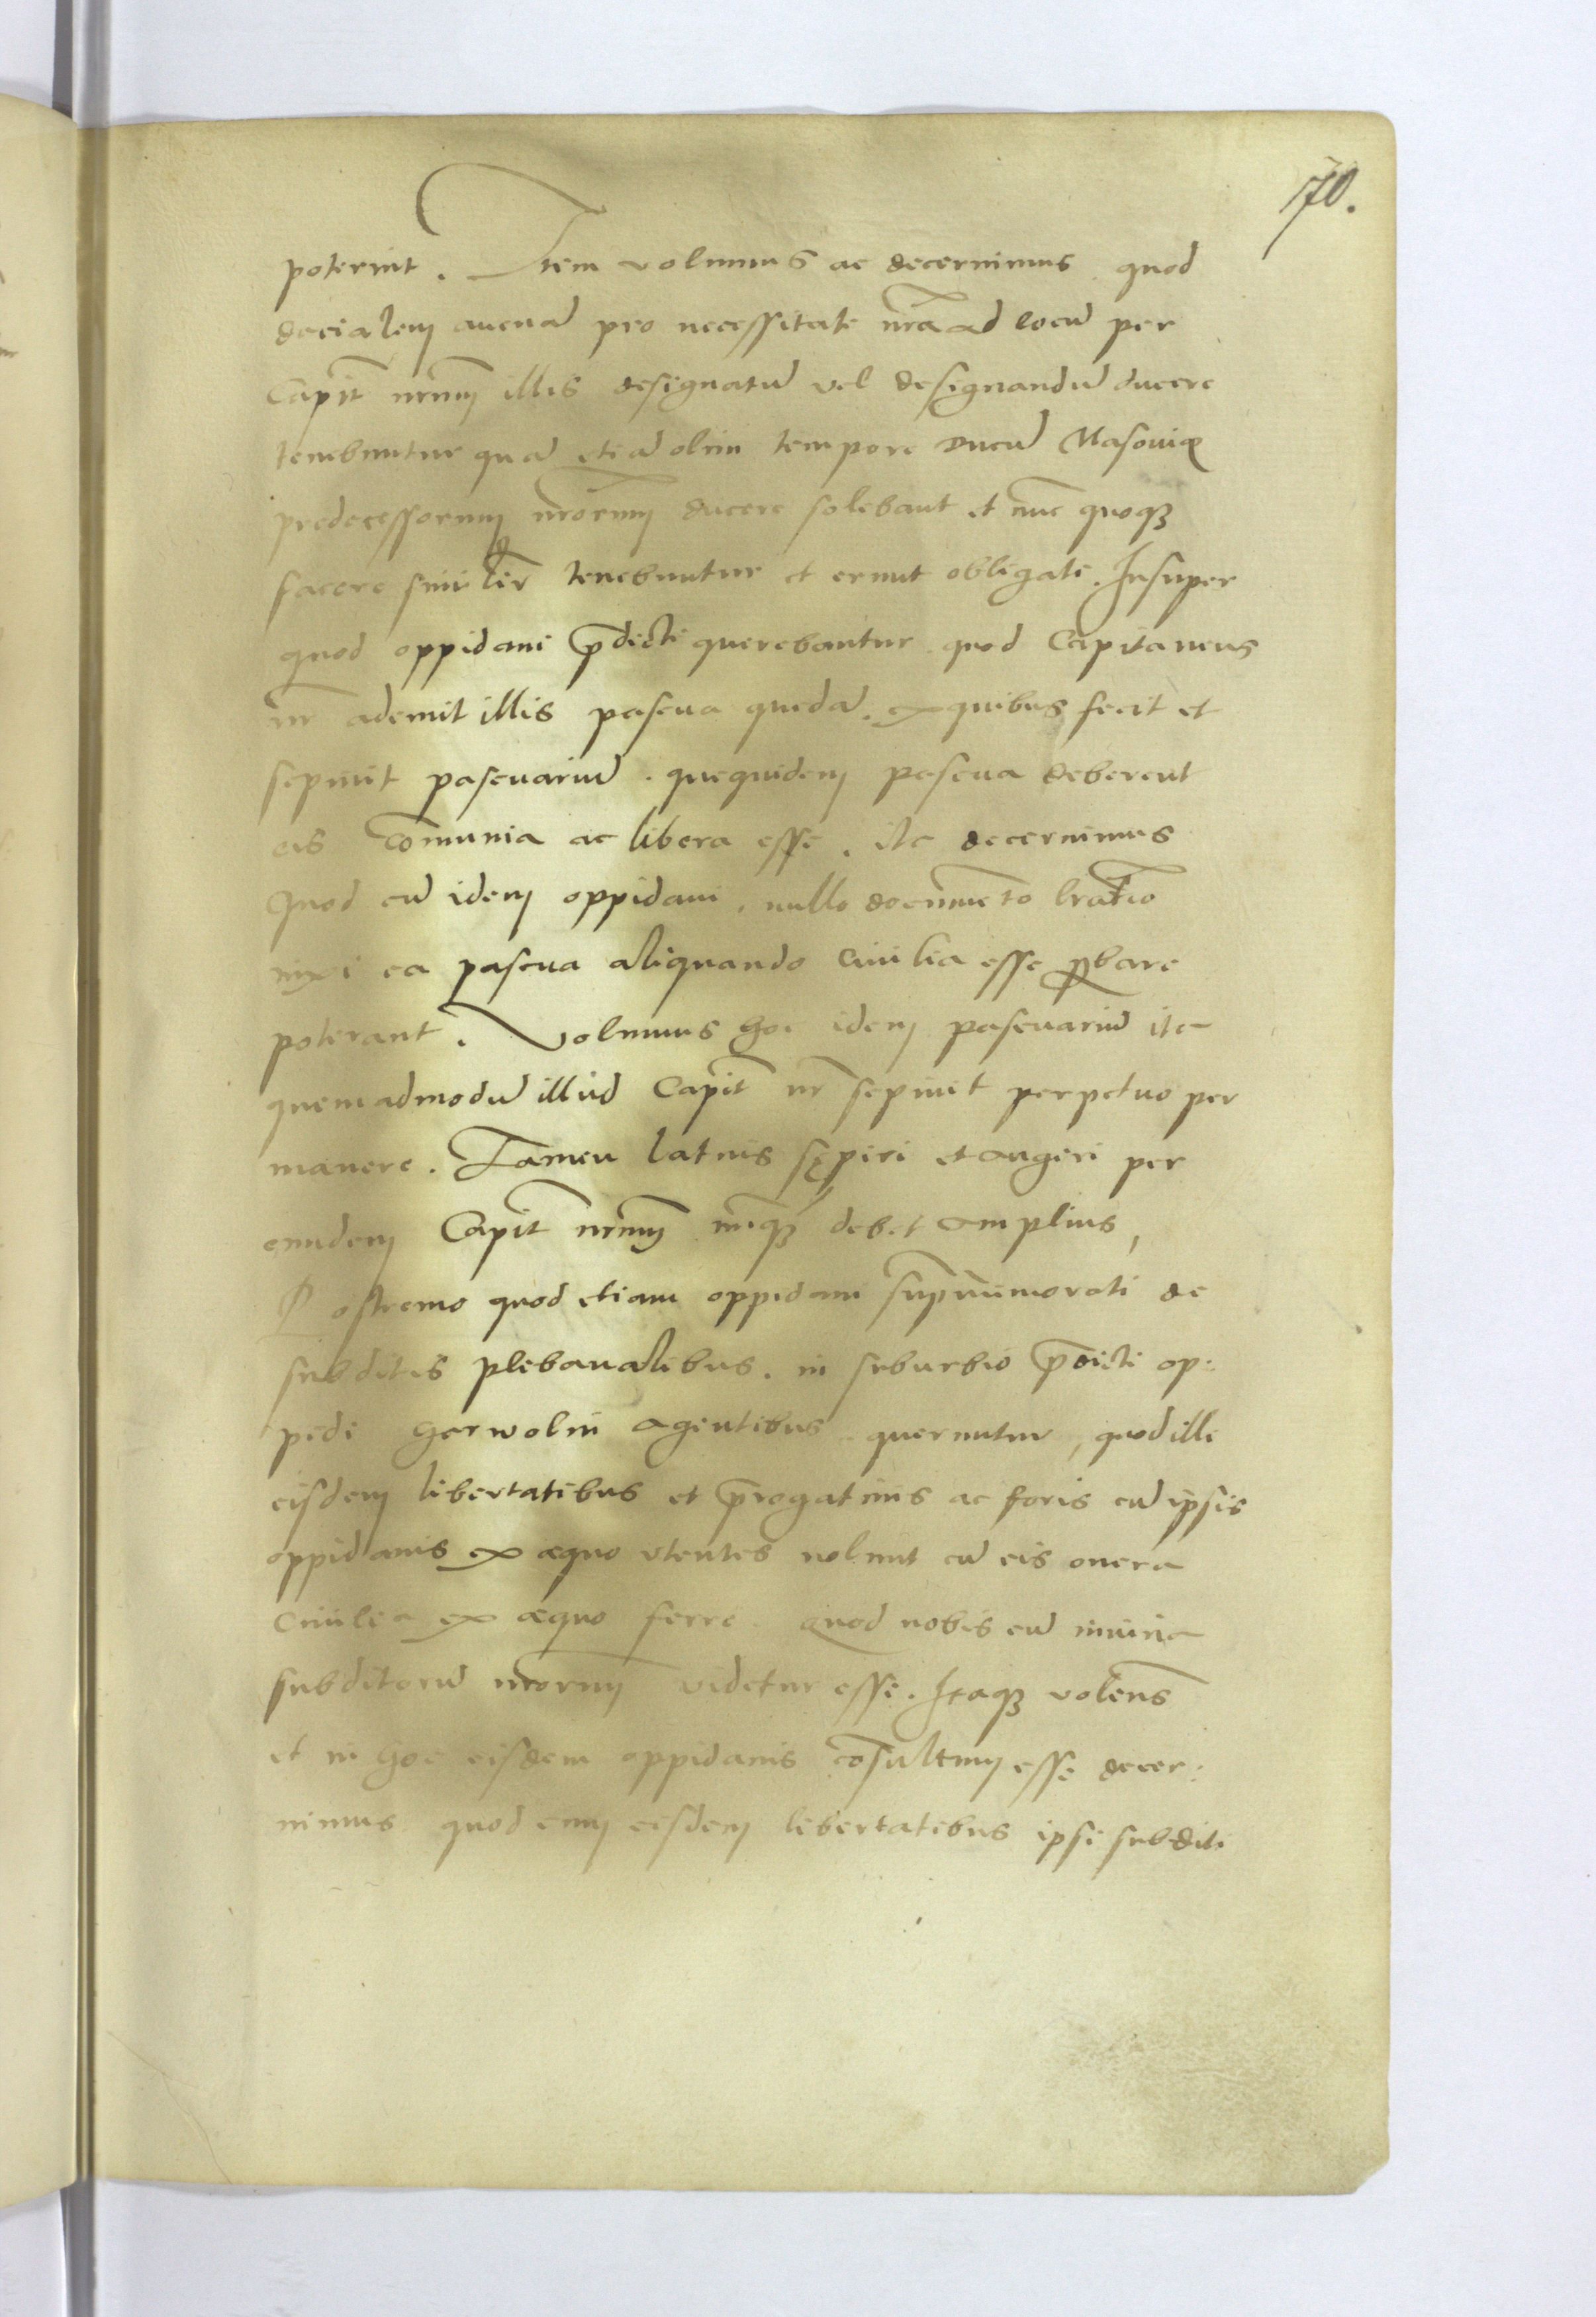 170.
poterint. Item volumus ac decernimus quod
decialem avenā pro necessitate nr̄a ad locū per
Capit̄ nr̄um illis designatū vel designandū ducere
tenebuntur quā etiā olim tempore Ducū Masovię
predecessorum nr̄orum ducere solebant et nūc quoqꝫ
facere similer̄ tenebuntur et erunt obligati. Insuper
quod oppidani p̄dicti querebantur quod Capitaneus
nr̄ ademit illis pascua quedā. ex quibus fecit et
sepiuit pascuariū. quequidem pascua deberent
eis cōmunia ac libera esse. ita decernimus
Quod cū idem oppidani, nullo documēto lr̄atorio
nixi ea pascua aliquando Ciuilia esse ꝓbare
poterant. Volumus hoc idem pascuariū ita
quemadmodū illud Capit̄ nr̄ sepiuit perpetuo per
manere. Tamen latius sępiri et augeri per
eundem Capit̄ nr̄um nūqꝫ debet amplius,
Postremo quod etiam oppidani supn̄umerati de
subditis plebanalibus. in suburbio p̄dicti op:
pidi Garwolin agentibus queruntur, quod illi
eisdem libertatibus et p̄rogatiuis ac foris cū ipsis
oppidanis ex æquo vtentes nolunt cū eis onera
Ciuilia ex æquo ferre. Quod nobis cū iniuria
subditorū nr̄orum videtur esse. Itaqꝫ volen̄s
et in hoc eisdem oppidanis cōsultum esse decer:
nimus quod cum eisdem libertatibus ipsi subditi